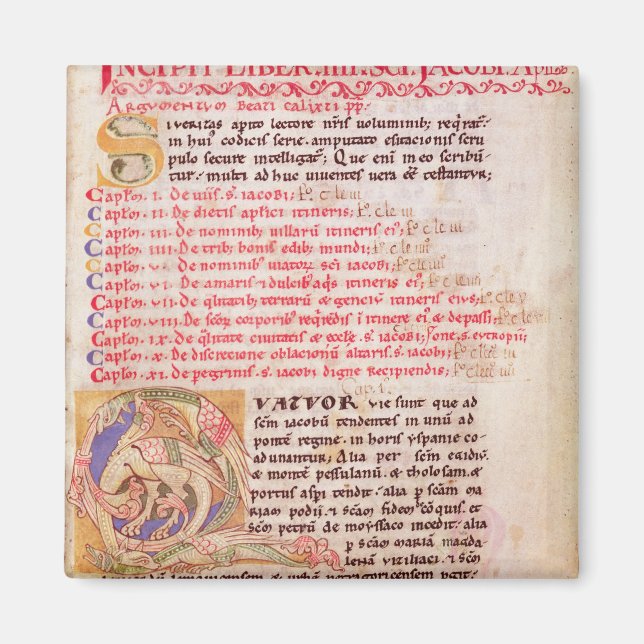 INCIPIT LIBER .IIII. SCI. JACOBI. APLI
ARGUMENTUM BEATI CALIXTI PP.
SI VERITAS apto lectore nris voluminib; reqrat
in hui' codicis serie. amputato esitacionis scru
pulo secure intelligat; Que eni in eo scribu
tur. multi ad huc viventes vera ee testantur;
Captm. I. De viis. s. iacobi;
Captm. II. De dietis aplici itineris;
Captm. III. De nominib; villaru itineris ei';
Captm. IIII. De trib; bonis edib; mundi;
Captm. V. De nominib' viator sci iacobi;
Captm. VI. De amaris & dulcib' aqs itineris ei';
Captm. VII. De qlitatib; terraru & genciu itineris eius;
Captm. VIII. De scor corporib' reqredis i itinere ei' & de passi;
Captm. IX. De qlitate civitatis & eccle. s. iacobi;
Captm. X. De discrecione oblacionu altaris. s. iacobi;
Captm. XI. De peregrinis. s. iacobi digne recipiendis;
Cap. I.
QUATUOR vie sunt que ad
scm iacobu tendentes in unu ad
ponte regine. in horis yspanie co
adunantur; Alia per scm egidiu
& monte pessulanu. & tholosam. &
portus aspi tendit. alia p scam ma
riam podii. & scam fidem coquis. et
scm petru de moyssaco incedit. alia
p scam mariã magda
lenã viziliaci. & scm